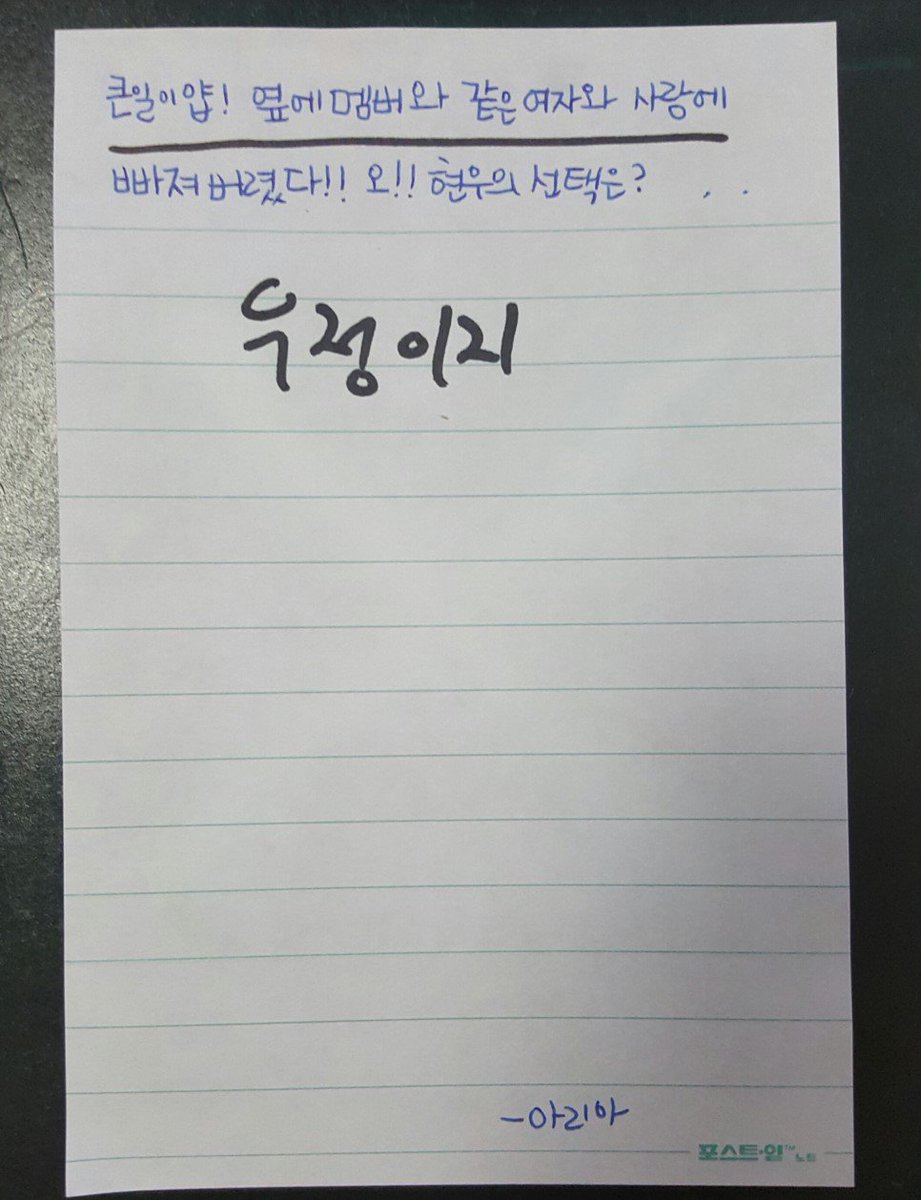 큰일이얍! 옆에 멤버와 같은 여자와 사랑에
빠져버렸다!! 오!! 현우의 선택은? . .
우정이지
-아리아
포스트·잇™노트